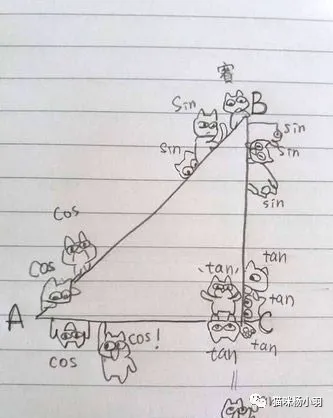 赛
B
sin
sin
sin
sin
sin
cos
cos
tan
tan
tan
A
C
cos
cos!
tan
tan
猫咪杨小羽